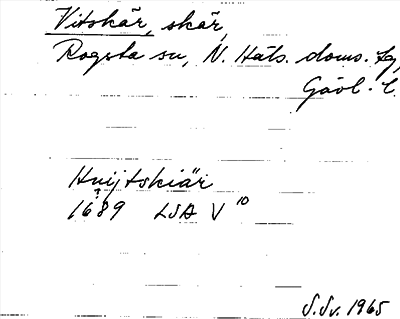 Vitskär, skär,
Rogsta sn, N. Häls. doms. tg,
Gävl. l.
Huijtskiär
1689 LSA V 10
S.Sv. 1965